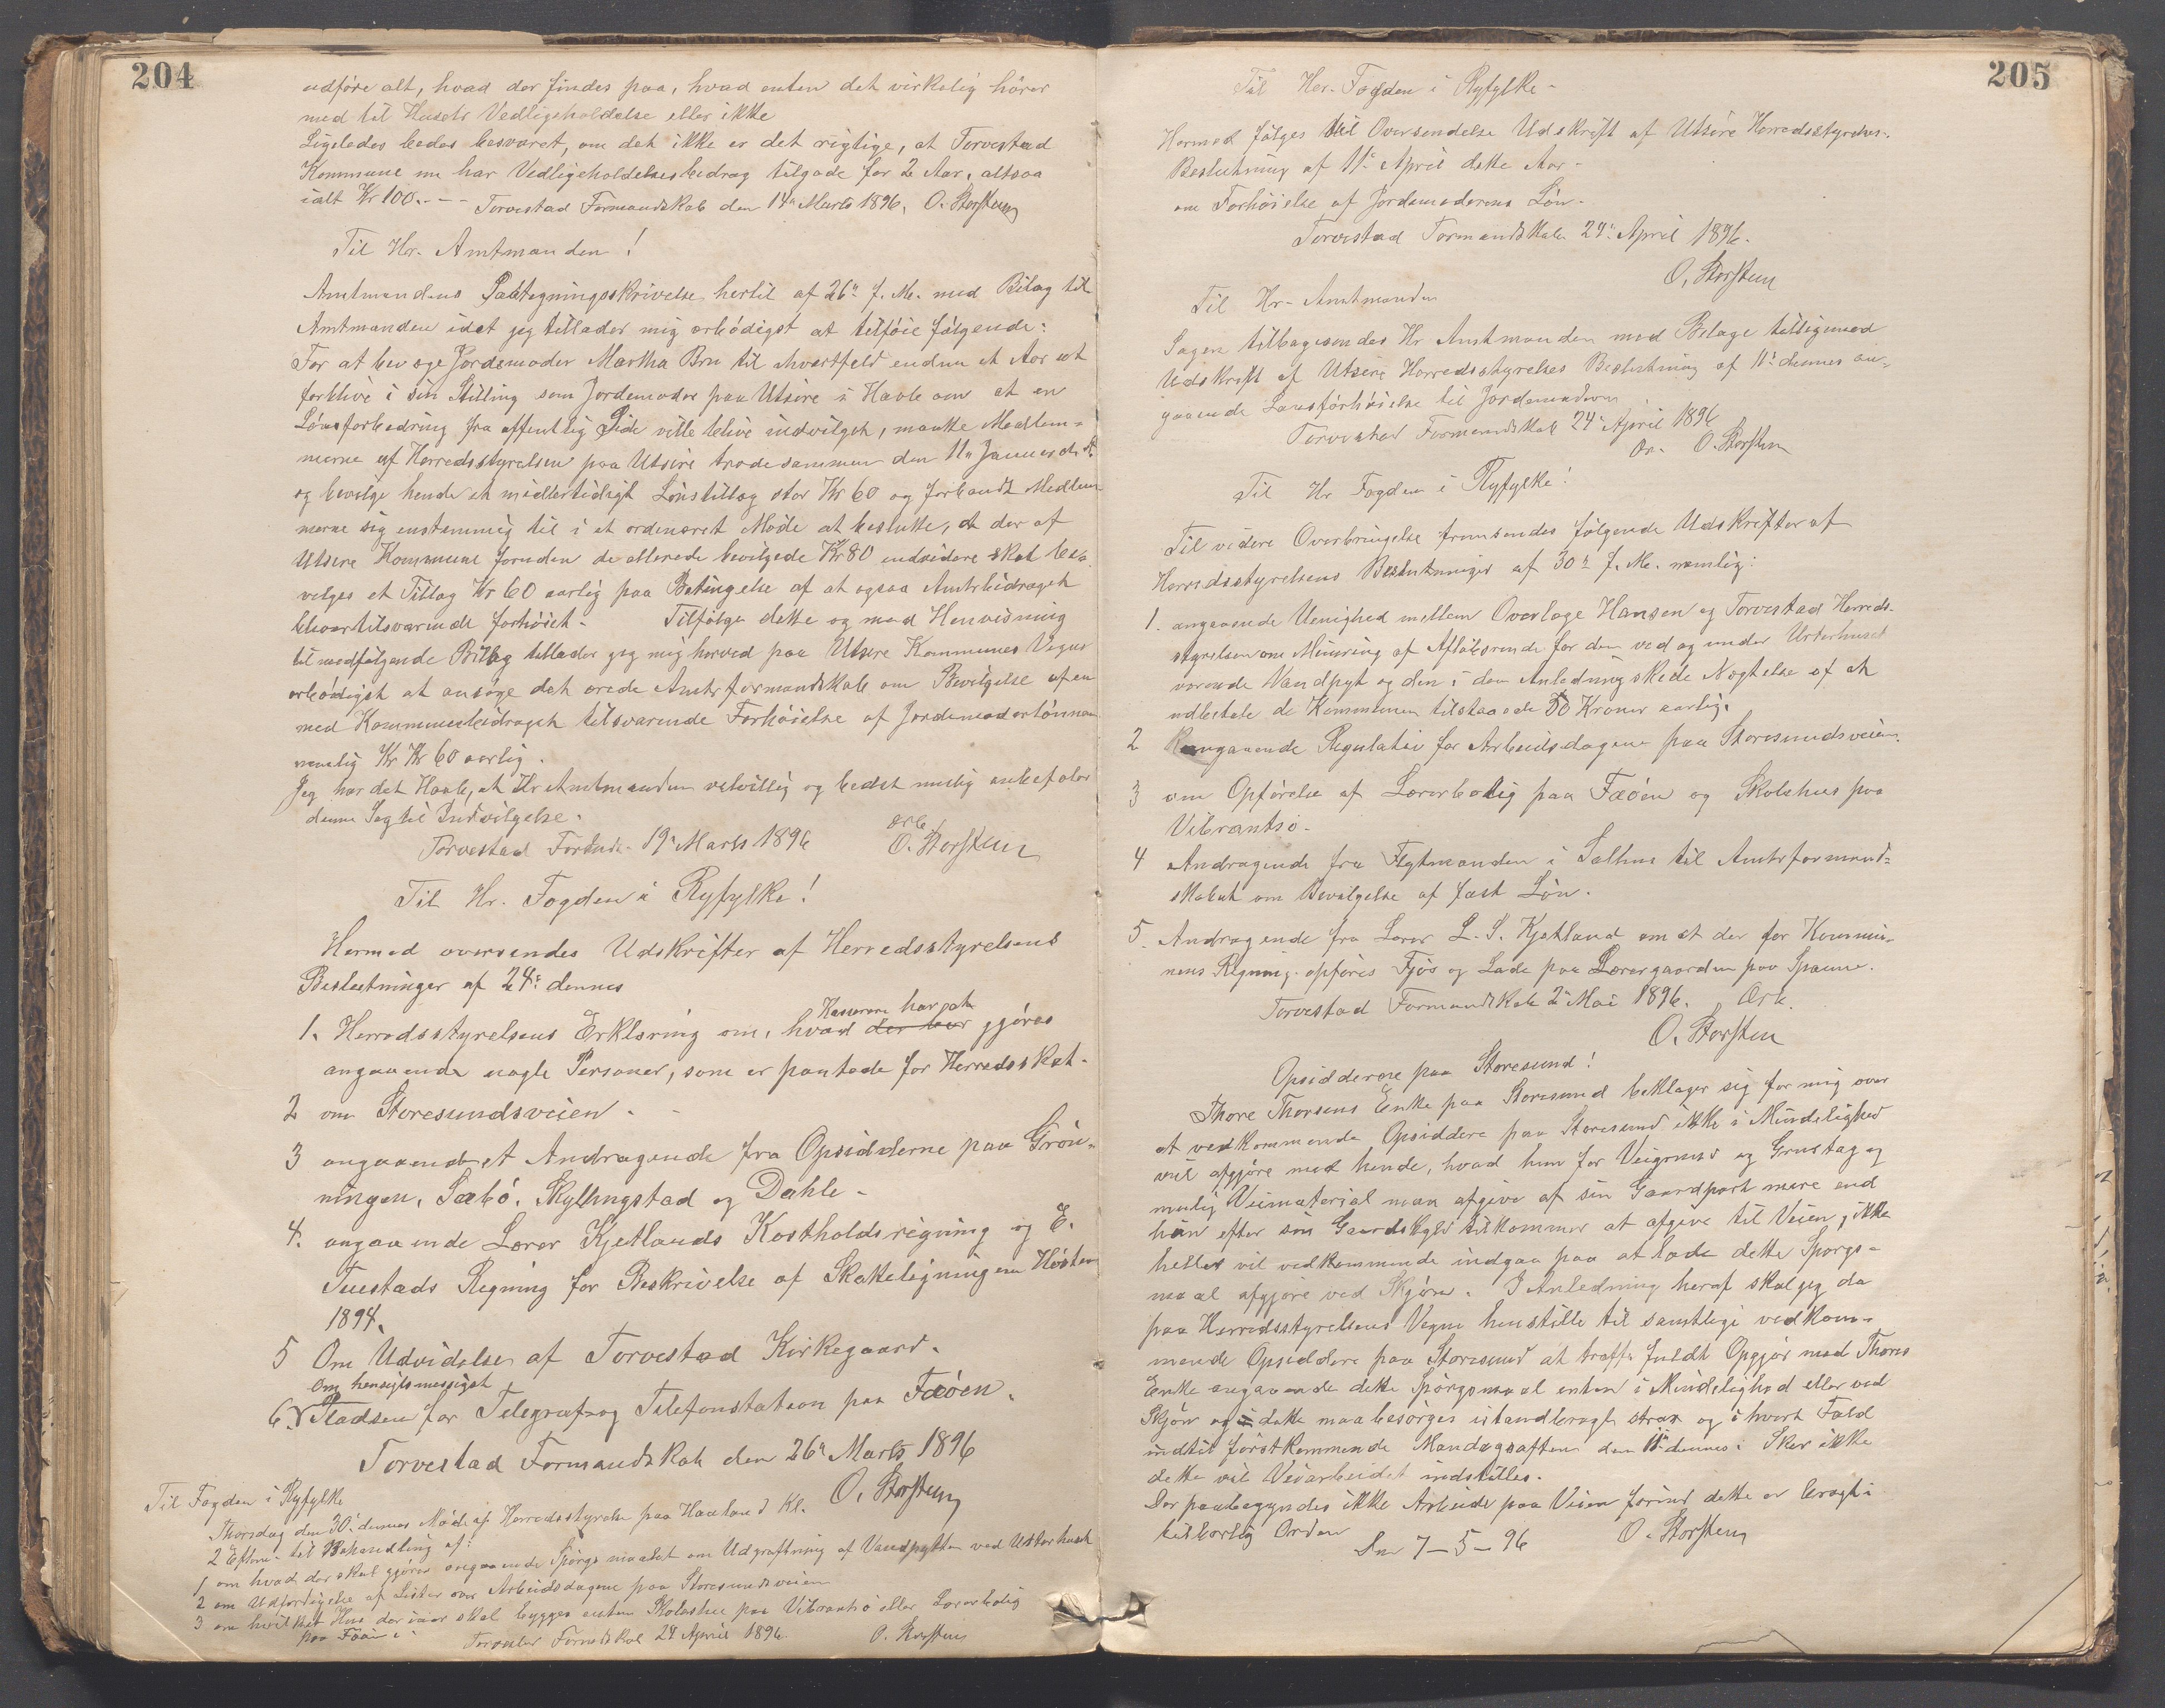 204
udføre alt, hvad der findes paa, hvad enten det virkelig hører
med til Husets Vedligeholdelse eller ikke
Ligeledes bedes besvaret, om det ikke er det rigtige, at Torvestad
Kommune nu har Vedligeholdelsesbidrag tilgode for 2 Aar, altsaa
ialt Kr 100.- - - Torvestad Formandskab den 14de Marts 1896. O. Storstein
Til Hr. Amtmanden!
Amtmandens Paategningsskrivelse hertil af 26de f. M. med Bilag til
Amtmanden idet jeg tillader mig ærbødigst at tilføie følgende:
For at bevæge Jordemoder Martha Bru til ihvertfald endnu et Aar at
forblive i sin Stilling som Jordemoder paa Utsire i Haab om at en
Lønsforbedring fra offentlig Side ville blive indvilget, maatte Medlem-
merne af Herredsstyrelsen paa Utsire træde sammen den 11te Januar d. A.
og bevilge hende et midlertidigt Lønstillæg stor Kr 60 og forbandt Medlem
merne sig enstemmig til i et ordenæret Møde at beslutte, at der af
Utsire Kommune foruden de allerede bevilgede Kr 80 endvidere skal be-
vilges et Tillæg Kr 60 aarlig paa Betingelse af at ogsaa Amtsbidraget
blver tilsvarende forhøiet. Tilfølge dette og med Henvisning
til medfølgende Bilag tillader jeg mig herved paa Utsire Kommunes Vegne
ærbødigst at ansøge det ærede Amtsformandskab om Bevilgelse af en
med Kommunebidraget tilsvarende Forhøielse af Jordemoderlønnen
nemlig Kr Kr 60 aarlig.
Jeg har det Haab, at Hr Amtmanden velvillig og bedst mulig anbefaler
denne Sag til Indvilgelse.
Torvestad Formds. 19de Marts 1896 ærb.
O. Storstein
Til Hr. Fogden i Ryfylke!
Hermed oversendes Udskrifter af Herredsstyrelsens
Beslutninger af 24de dennes
Kasserern har at
1. Herredsstyrelsens Erklæring om, hvad der bør gjøres
angaaende nogle Personer, som er pantede for Herredsskat.
2 om Storesundsveien.
3 angaaende et Andragende fra Opsidderne paa Grøn-
ningen, Sæbø, Skyllingstad og Dahle.
4. angaaende Lærer Kjetlands Kostholdsregning og E.
Tuestads Regning for Beskrivelse af Skatteligningen Høsten
1894.
5 Om Udvidelse af Torvestad Kirkegaard.
Om hensigtsmessigst
6. Pladsen for Telegraf- og Telefonstation paa Fæøen.
Torvestad Formandskab den 26de Marts 1896
O. Storstein
Til Fogden i Ryfylke
Thorsdag den 30de dennes Møde af Herredsstyrelse paa Haaland Kl.
2 Efterm. til Behandling af:
1 om hvad der skal gjøres angaaende Spørgsmaalet om Udgrøftning af Vandpytten ved Urterhuset
2 om Udfærdigelse af Lister over Arbeidsdagene paa Storesundsveien
3 om hvilket Hus der iaar skal bygges enten Skolehus paa Vibrantsø eller Lærerbolig
paa Fæøen.
Torvestad Formdskab 24 April 1896. O. Storstein
205
Til Her. Fogden i Ryfylke.
Hermed følges til Oversendelse Udskrift af Utsire Herredsstyrelses.
Beslutning af 11te April dette Aar.
om Forhøielse af Jordemoderens Løn.
Torvestad Formandskab 24de April 1896.
O. Storstein
Til Hr. Amtmanden
Sagen tilbagesendes Hr Amtmanden med Bilage tilligemed
Udskrift af Utsire Herredsstyrelses Beslutning af 11te dennes an-
gaaende Lønsforhøielse til Jordemoderen
Torvestad Formandskab 24de April 1896
O. Storstein
Til Hr Fogden i Ryfylke!
Til videre Overbringelse fremsendes følgende Udskrifter af
Herredsstyrelsens Beslutninger af 30te f. M. nemlig:
1. angaaende Uenighed mellem Overlæge Hansen og Torvestad Herreds-
styrelse om Minering af Afløbsrende for den ved og under Urterhuset
værende Vandpyt og den i den Anledning skede Nægtelse af at
udbetale de Kommunen tilstaaede 50 Kroner aarlig.
2 angaaende Regulativ for Arbeidsdagene paa Storesundsveien.
3 om Opførelse af Lærerbolig paa Fæøen og Skolehus paa
Vibrantsø.
4 Andragende fra Flytmanden i Salhus til Amtsformand-
skabet om Bevilgelse af fast Løn.
5. Andragende fra Lærer L. S. Kjetland om at der for Kommu-
nens Regning opføres Fjøs og Lade paa Lærergaarden paa Spanne.
Torvestad Formandskab 2den Mai 1896. Ærb.
O. Storstein
Opsidderne paa Storesund!
Thore Thorsens Enke paa Storesund beklager sig for mig over
at vedkommende Opsiddere paa Storesund ikke i Mindelighed
vil afgjøre med hende, hvad hun for Veigrund og Grustag og
mulig Veimaterial maa afgive af sin Gaardpart mere end
hun efter sin Gaardskyld tilkommer at afgive til Veien, ikke
heller vil vedkommende indgaa paa at lade dette Spørgs-
maal afgjøre ved Skjøn. I Anledning heraf skal jeg da
paa Herredsstyrelsens Vegne henstille til samtlige vedkom-
mende Opsiddere paa Storesund at træffe fuldt Opgjør med Thores
Enke angaaende dette Spørgsmaal enten i Mindelighed eller ved
Skjøn og dette maa besørges istandbragt strax og i hvert Fald
indtil førstkommende Mandagsaften den 11te dennes. Sker ikke
dette vil Veiarbeidet indstilles.
Der paabegyndes ikke Arbeide paa Veien førend dette er bragt i
tilbørlig Orden
Den 7-5-96 O. Storstein